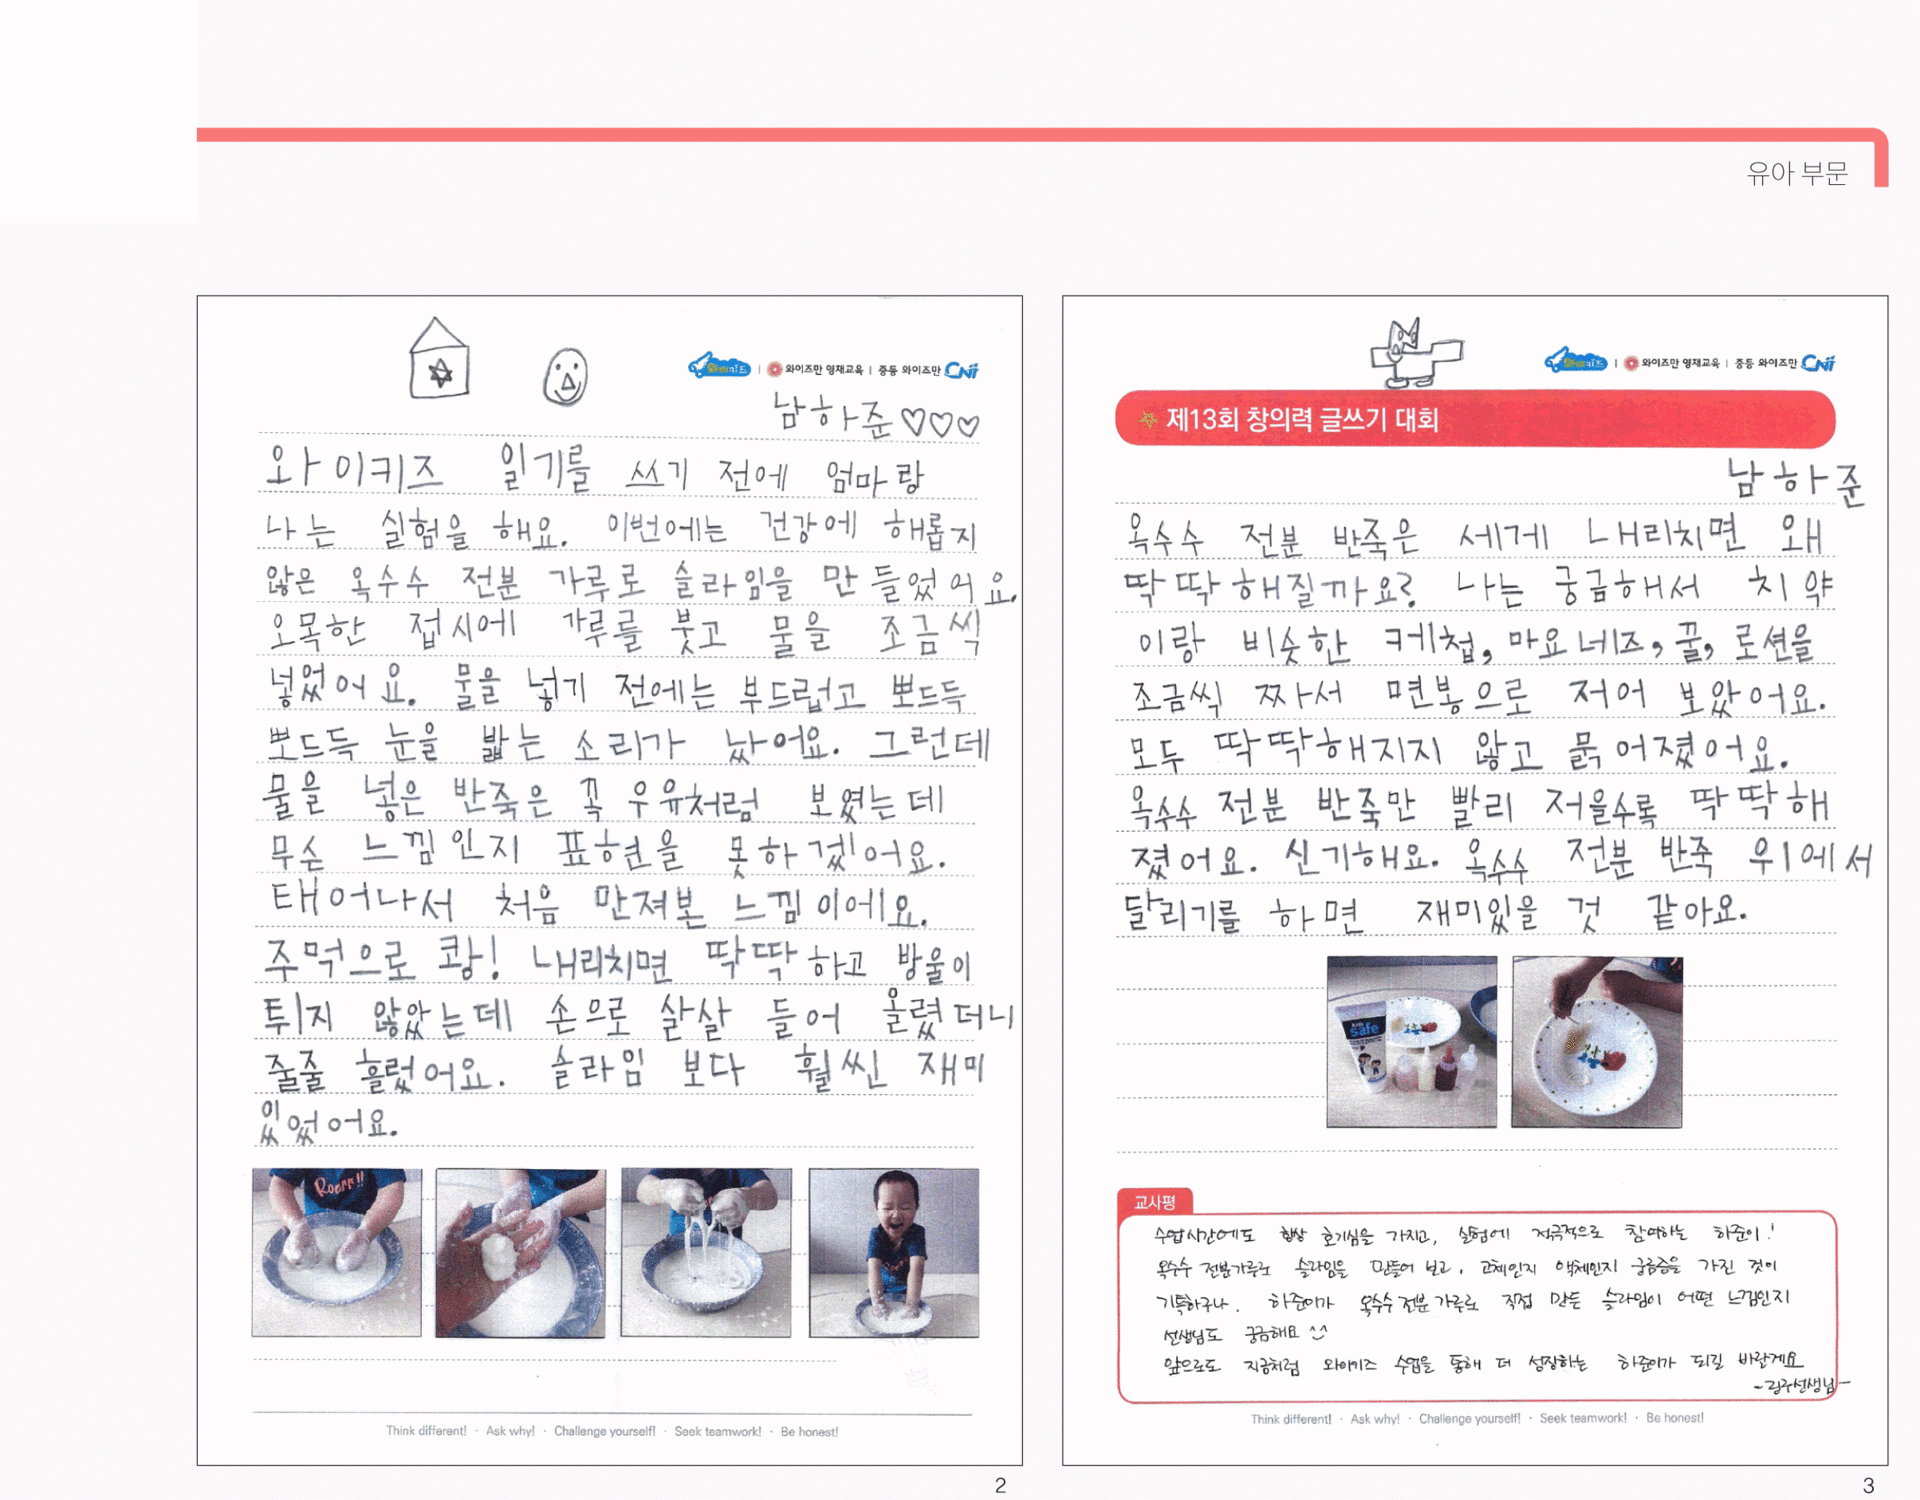 유아 부문
와이키즈 | 와이즈만 영재교육 | 중등 와이즈만 CNI
남하준♡♡♡
와이키즈 일기를 쓰기 전에 엄마랑
나는 실험을 해요. 이번에는 건강에 해롭지
않은 옥수수 전분 가루로 슬라임을 만들었어요.
오목한 접시에 가루를 붓고 물을 조금씩
넣었어요. 물을 넣기 전에는 부드럽고 뽀드득
뽀드득 눈을 밟는 소리가 났어요. 그런데
물을 넣은 반죽은 꼭 우유처럼 보였는데
무슨 느낌인지 표현을 못하겠어요.
태어나서 처음 만져본 느낌이에요.
주먹으로 쾅! 내리치면 딱딱하고 방울이
튀지 않았는데 손으로 살살 들어 올렸더니
줄줄 흘렀어요. 슬라임 보다 훨씬 재미
있었어요.
Roarr!!
Think different! · Ask why! · Challenge yourself! · Seek teamwork! · Be honest!
2
와이키즈 | 와이즈만 영재교육 | 중등 와이즈만 CNI
제13회 창의력 글쓰기 대회
남하준
옥수수 전분 반죽은 세게 내리치면 왜
딱딱해질까요? 나는 궁금해서 치약
이랑 비슷한 케첩, 마요네즈, 꿀, 로션을
조금씩 짜서 면봉으로 저어 보았어요.
모두 딱딱해지지 않고 묽어졌어요.
옥수수 전분 반죽만 빨리 저을수록 딱딱해
졌어요. 신기해요. 옥수수 전분 반죽 위에서
달리기를 하면 재미있을 것 같아요.
safe
교사평
수업시간에도 항상 호기심을 가지고, 실험에 적극적으로 참여하는 하준이!
옥수수 전분가루로 슬라임을 만들어 보고, 고체인지 액체인지 궁금증을 가진 것이
기특하구나. 하준이가 옥수수 전분가루로 직접 만든 슬라임이 어떤 느낌인지
선생님도 궁금해요 ^^
앞으로도 지금처럼 와이키즈 수업을 통해 더 성장하는 하준이가 되길 바랄게요
Think different! · Ask why! · Challenge yourself! · Seek teamwork! · Be honest!
3